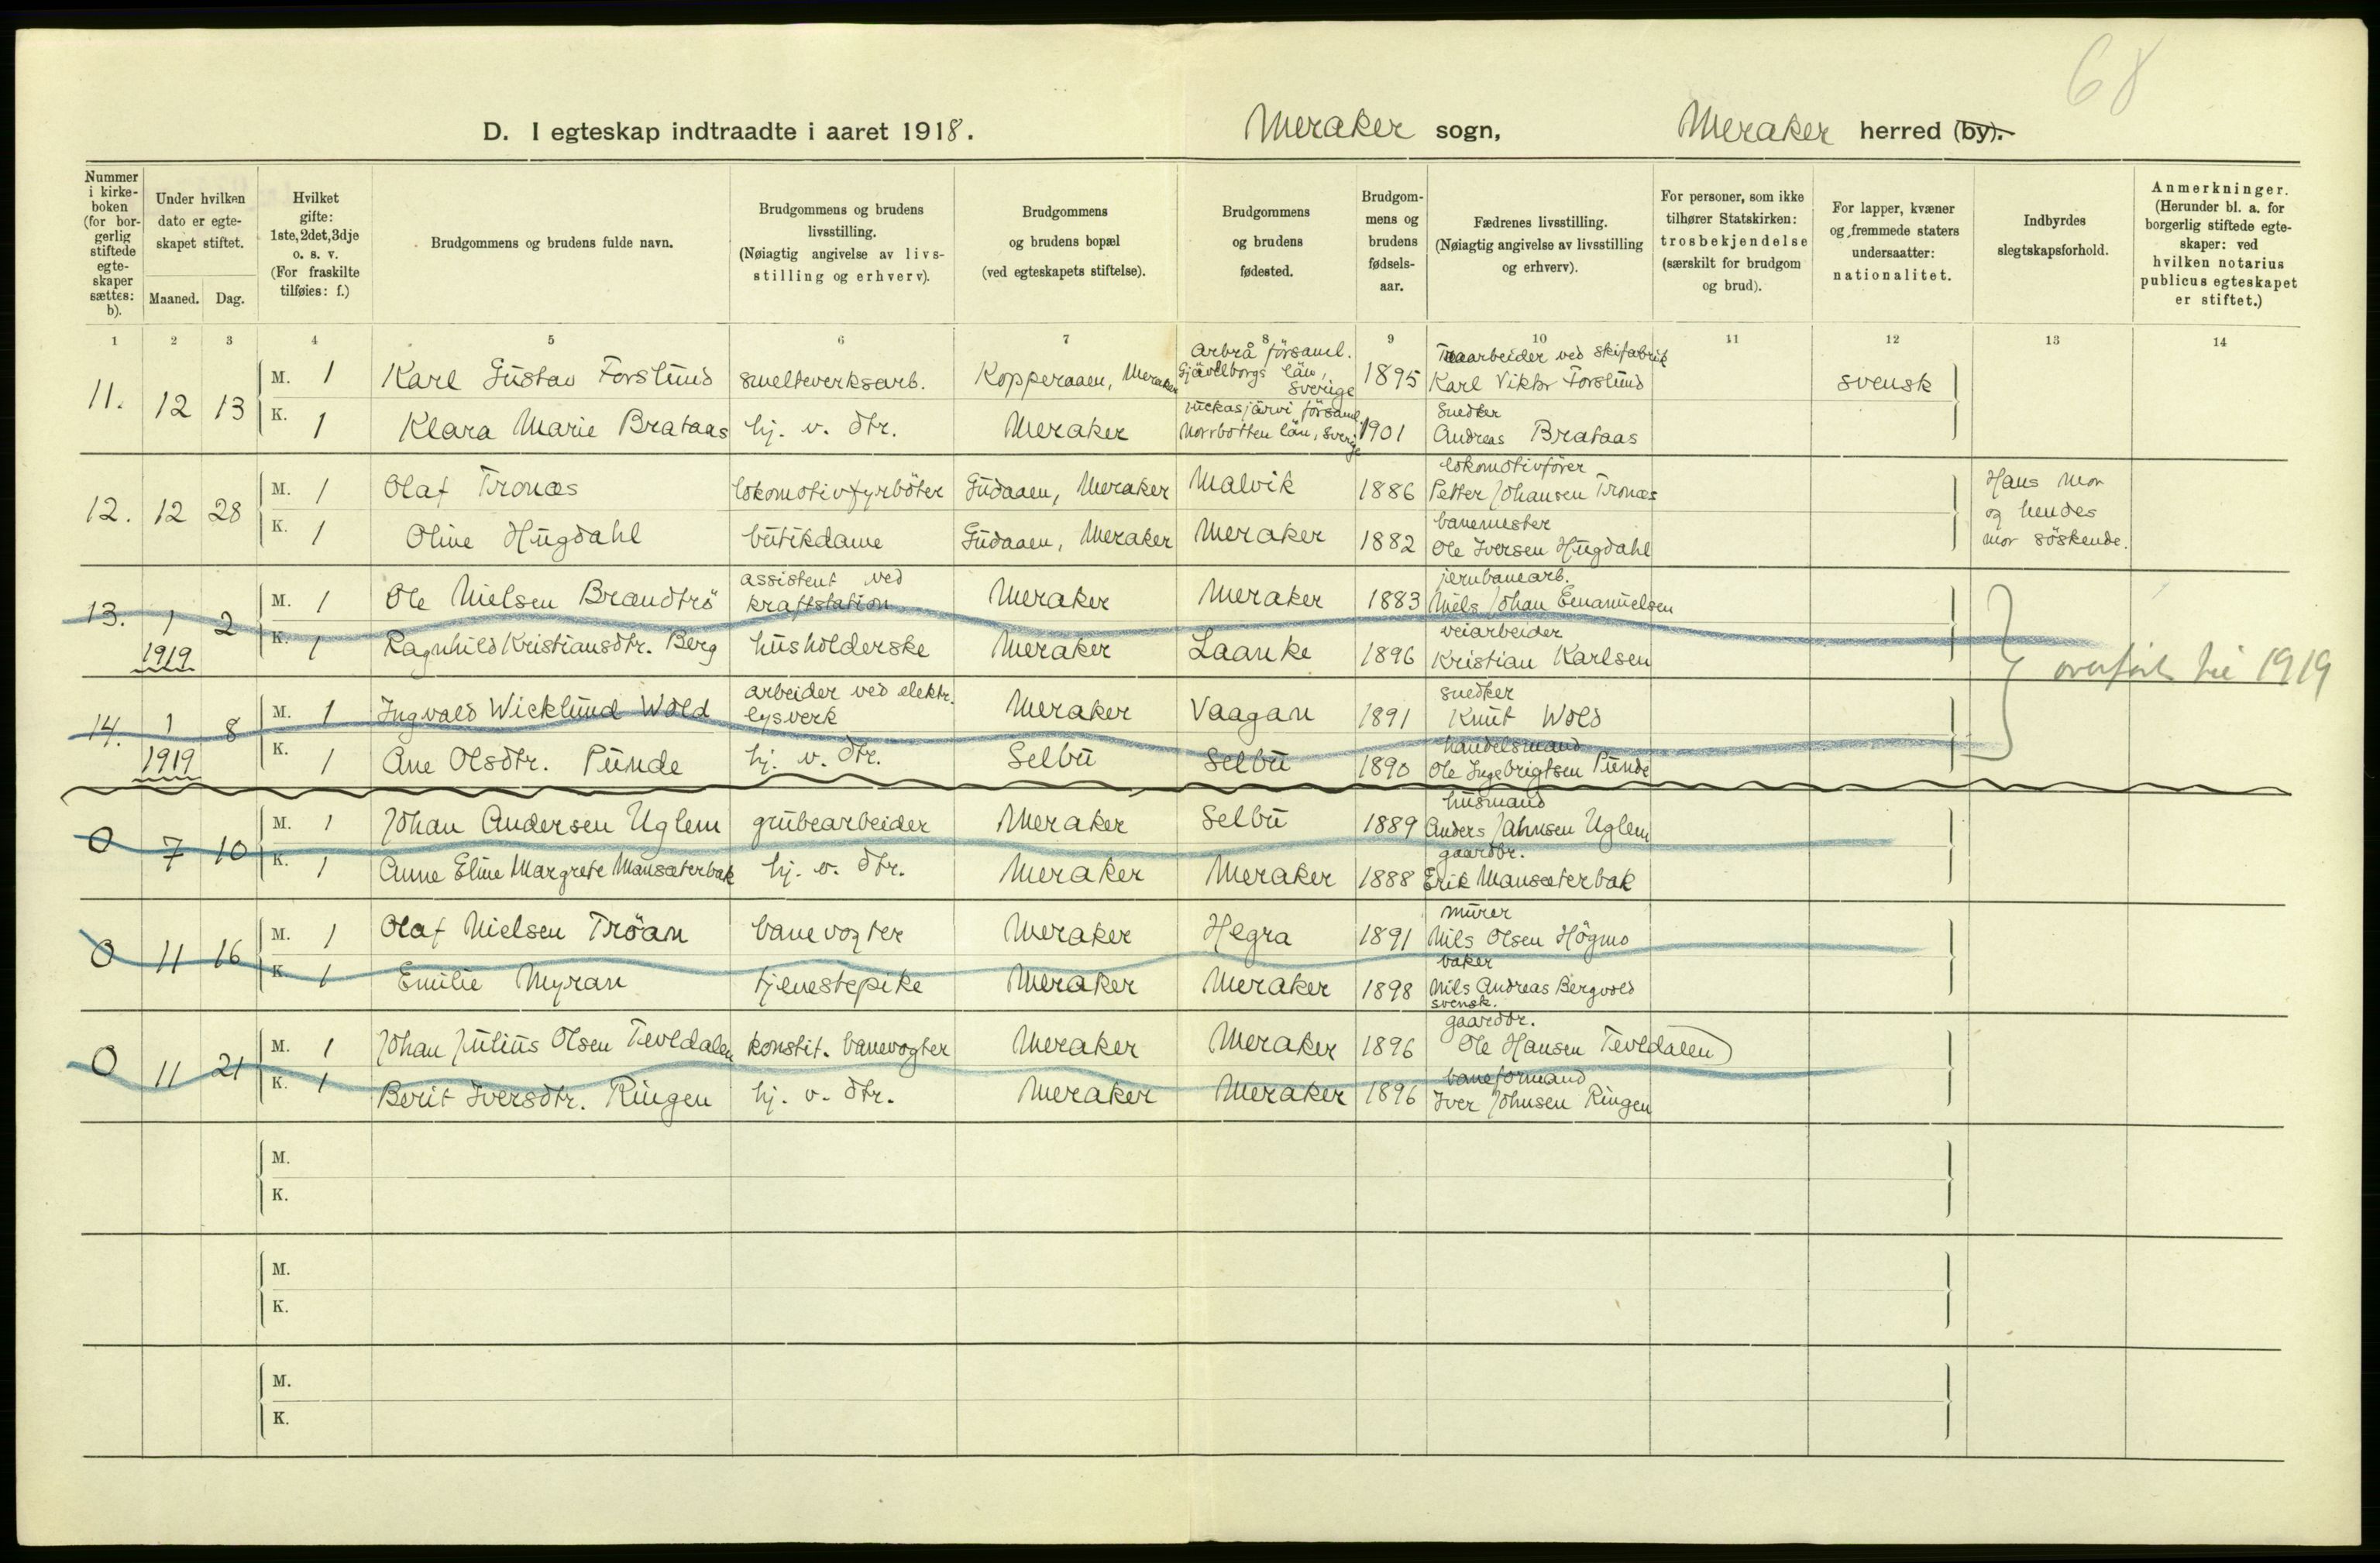 68
D. I egteskap indtraadte i aaret 1918. Meraker sogn, Meraker herred (by).
Nummer i kirkeboken (for borgerlig stiftede egteskaper sættes: b).
Under hvilken dato er egteskapet stiftet.
Maaned. Dag.
Hvilket gifte: 1ste, 2det, 3dje o. s. v. (For fraskilte tilføies: f.)
Brudgommens og brudens fulde navn.
Brudgommens og brudens livsstilling. (Nøiagtig angivelse av livsstilling og erhverv).
Brudgommens og brudens bopæl (ved egteskapets stiftelse).
Brudgommens og brudens fødested.
Brudgommens og brudens fødselsaar.
Fædrenes livsstilling. (Nøiagtig angivelse av livsstilling og erhverv).
For personer, som ikke tilhører Statskirken: trosbekjendelse (særskilt for brudgom og brud).
For lapper, kvæner og fremmede staters undersaatter: nationalitet.
Indbyrdes slegtskapsforhold.
Anmerkninger. (Herunder bl. a. for borgerlig stiftede egteskaper: ved hvilken notarius publicus egteskapet er stiftet.)
1 2 3 4 5 6 7 8 9 10 11 12 13 14
11. 12 13
M. 1 Karl Gustav Forslund smelteverksarb. Kopperaaen, Meraker Arbrå församl. Gjävelborgs län, Sverige 1895 Træarbeider ved skifabrik Karl Viktor Forslund svensk
K. 1 Klara Marie Brataas hj. v. dtr. Meraker Juckasjärvi församl. Norrbotten län, Sverige 1901 Snedker Andreas Brataas
12. 12 28
M. 1 Olaf Tronæs lokomotivfyrböter Gudaaen, Meraker Malvik 1886 lokomotivfører Petter Johansen Tronæs
K. 1 Oline Hugdahl butikdame Gudaaen, Meraker Meraker 1882 banemester Ole Iversen Hugdahl
Hans mor
og hendes
mor söskende.
13. 1 2
1919
M. 1 Ole Nielsen Brandtrö assistent ved kraftstation Meraker Meraker 1883 jernbanearb. Niels Johan Emanuelsen
K. 1 Ragnhild Kristiansdtr. Berg husholderske Meraker Laanke 1896 veiarbeider Kristian Karlsen
overført til 1919
14. 1 8
1919
M. 1 Ingvald Wicklund Wold arbeider ved elektr. lysverk Meraker Vaagan 1891 snedker Knut Wold
K. 1 Ane Olsdtr. Punde hj. v. dtr. Selbu Selbu 1890 handelsmand Ole Ingebrigtsen Punde
0 7 10
M. 1 Johan Andersen Uglem grubearbeider Meraker Selbu 1889 husmand Anders Jahnsen Uglem
K. 1 Anne Eline Margrete Mansæterbak hj. v. dtr. Meraker Meraker 1888 gaardbr. Erik Mansæterbak
0 11 16
M. 1 Olaf Nielsen Tröan banevogter Meraker Hegra 1891 murer Nils Olsen Högmo
K. 1 Emilie Myran tjenestepike Meraker Meraker 1898 baker Nils Andreas Bergvold svensk.
0 11 21
M. 1 Johan Julius Olsen Tevldalen konstit. banevogter Meraker Meraker 1896 gaardbr. Ole Hansen Tevldalen
K. 1 Berit Iversdtr. Ringen hj. v. dtr. Meraker Meraker 1896 baneformand Iver Johnsen Ringen
M.
K.
M.
K.
M.
K.